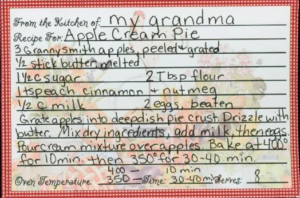 From the Kitchen of my grandma
Recipe For: Apple Cream Pie
3 Granny smith apples, peeled & grated
1/2 stick butter, melted
1 1/2 c sugar 2 Tbsp flour
1 tsp each cinnamon & nutmeg
1/2 c milk 2 eggs, beaten
Grate apples into deep dish pie crust. Drizzle with
butter. Mix dry ingredients, add milk, then eggs.
Pour cream mixture over apples. Bake at 400°
for 10 min. then 350° for 30-40 min.
Oven Temperature 400 - 350 Time: 10 min 30-40 min Serves 8